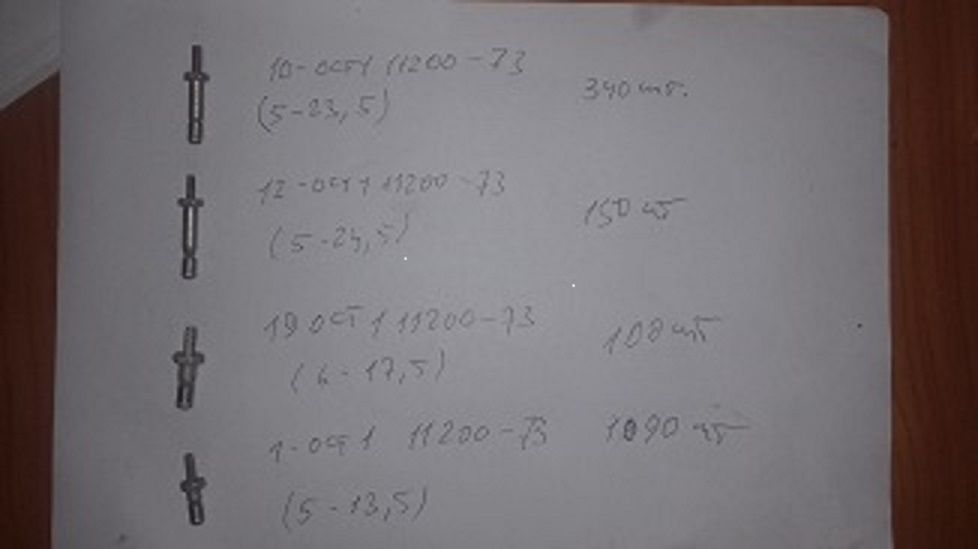 10-ОСТ1 11200-73 340 шт.
(5-23,5)
12-ОСТ1 11200-73 150 шт
(5-24,5)
19 ОСТ 1 11200-73 100 шт
(6-17,5)
1-ОСТ1 11200-73 1090 шт
(5-13,5)